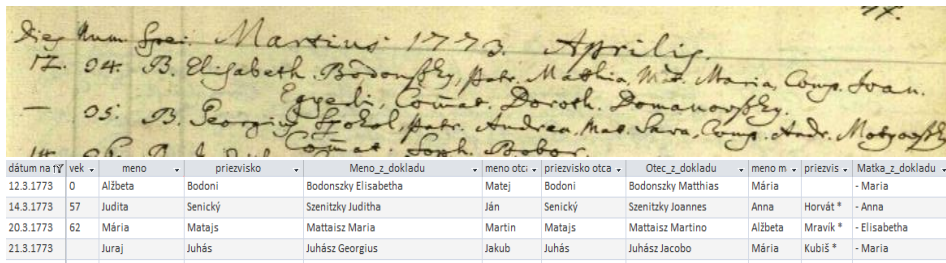 Dies Num. Spei. Martius 1773. Aprilis.
12. 04. B. Elisabeth. Bodonszky, patr. Matthia, Mat. Maria, Comp. Joan.
Egyedi, Com̄at. Doroth. Domanovszky.
— 05. B. Georgius Szokol, patr. Andrea, Mat. Sara, Comp. Andr. Motyovszky
Com̄at. Soph. Bobor.
dátum na vek meno priezvisko Meno_z_dokladu meno otc priezvisko otca Otec_z_dokladu meno m priezvis Matka_z_dokladu
12.3.1773 0 Alžbeta Bodoni Bodonszky Elisabetha Matej Bodoni Bodonszky Matthias Mária - Maria
14.3.1773 57 Judita Senický Szenitzky Juditha Ján Senický Szenitzky Joannes Anna Horvát * - Anna
20.3.1773 62 Mária Matajs Mattaisz Maria Martin Matajs Mattaisz Martino Alžbeta Mravík * - Elisabetha
21.3.1773 Juraj Juhás Juhász Georgius Jakub Juhás Juhász Jacobo Mária Kubiš * - Maria